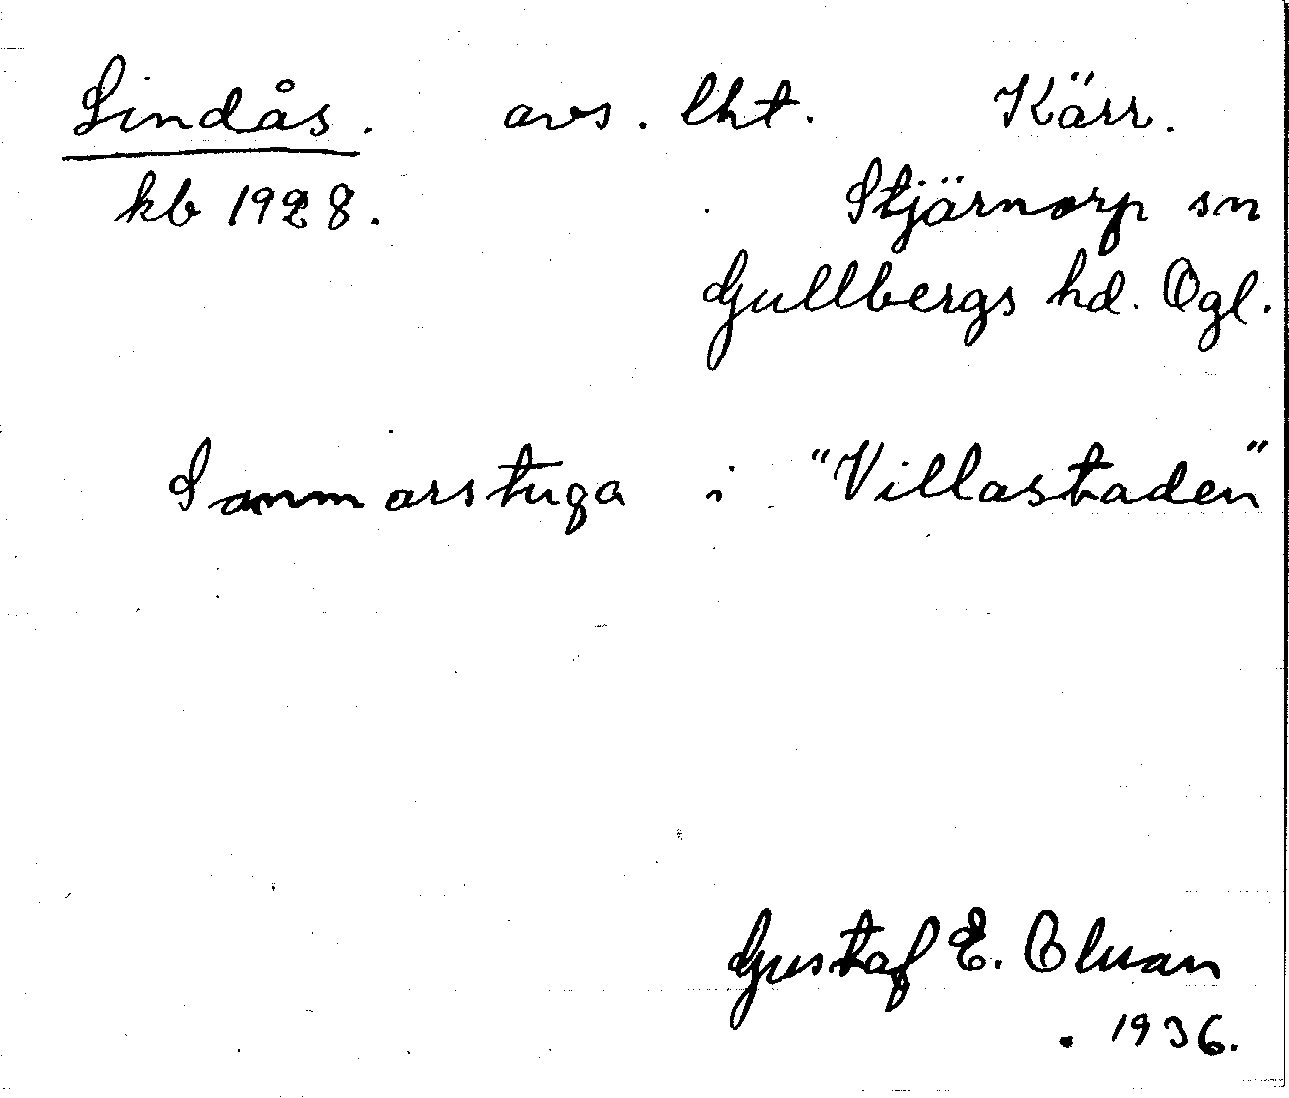 Lindås. avs. lht. Kärr.
kb 1928. Stjärnorp sn
Gullbergs hd. Ögl.
Sommarstuga i "Villastaden"
Gustaf E. Olman
. 1936.